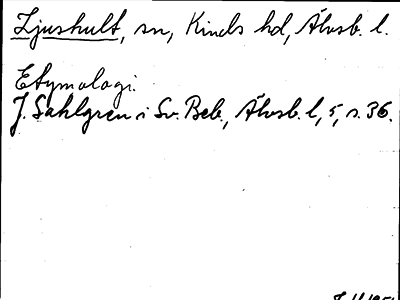 Ljushult, sn, Kinds hd, Älvsb. l.
Etymologi.
J. Sahlgren i Sv. Beb., Älvsb. l, 5, s. 36.